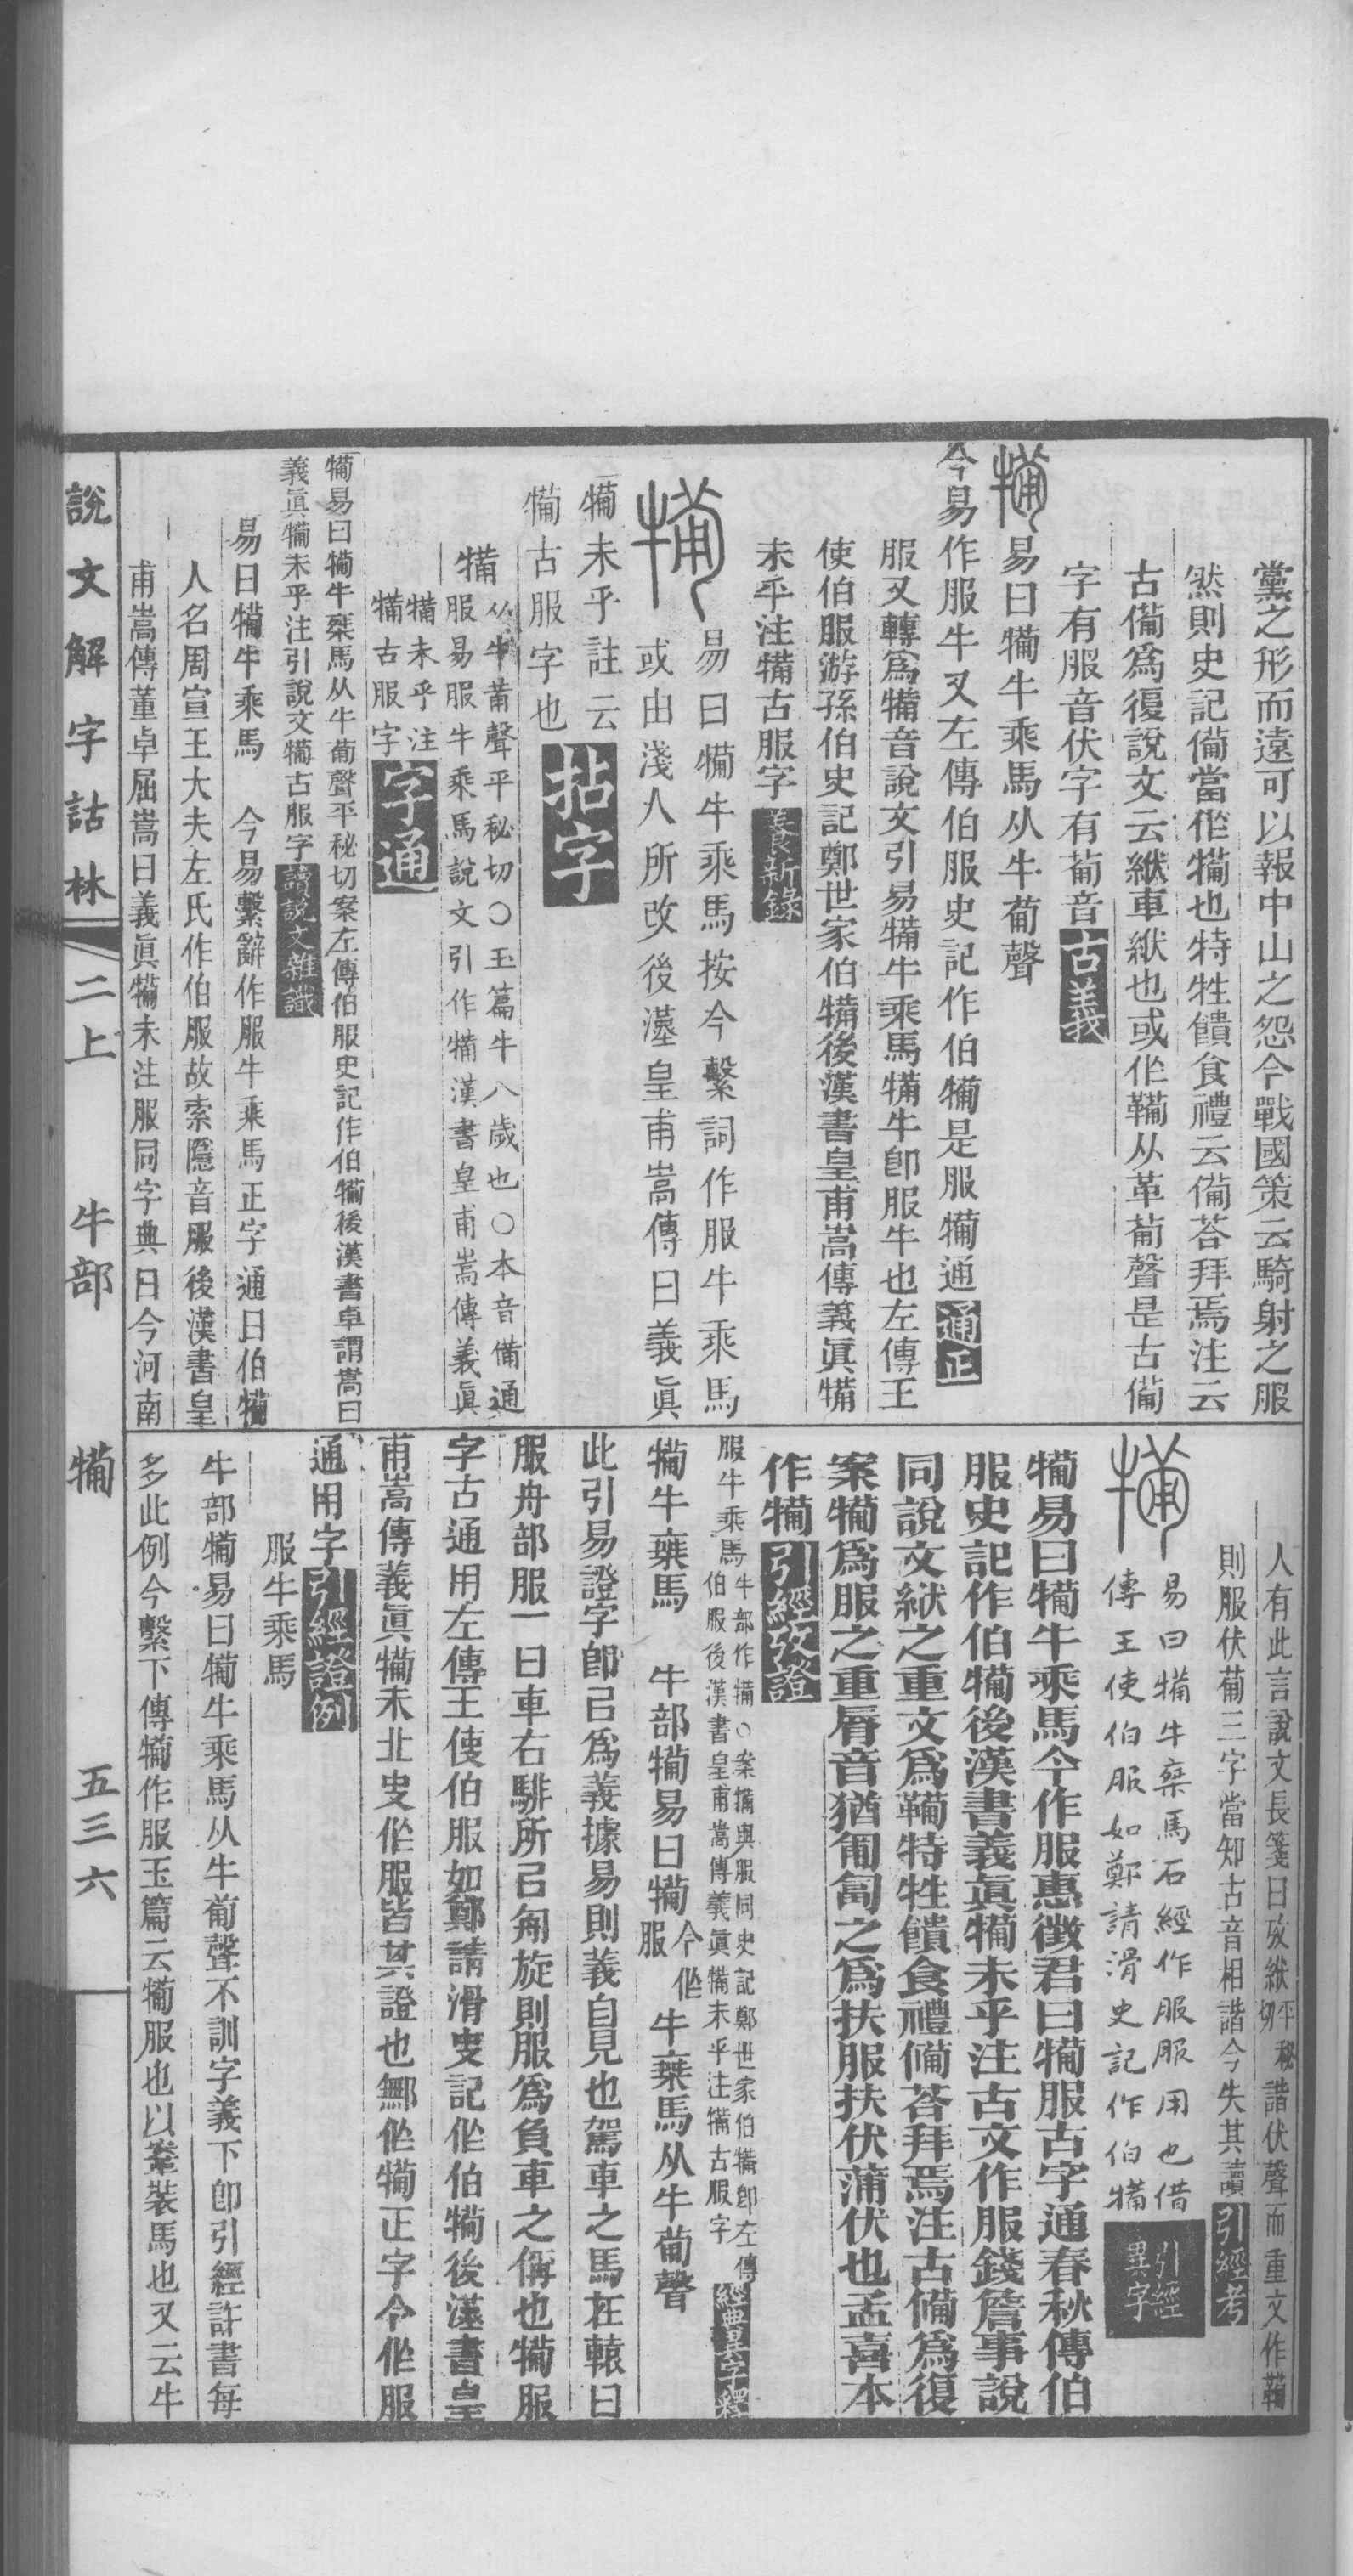 黨之形而遠可以報中山之怨今戰國策云騎射之服
然則史記備當作犕也特牲饋食禮云備荅拜焉注云
古備爲復說文云紱車紱也或作鞴从革葡聲是古備
字有服音伏字有葡音古義
犕易曰犕牛乘馬从牛葡聲
今易作服牛又左傳伯服史記作伯犕是服犕通通正
服又轉爲犕音說文引易犕牛乘馬犕牛卽服牛也左傳王
使伯服游孫伯史記鄭世家伯犕後漢書皇甫嵩傳義眞犕
未乎注犕古服字養新錄
犕易曰犕牛乘馬按今繫詞作服牛乘馬
或由淺人所改後漢皇甫嵩傳曰義眞
犕未乎註云
犕古服字也拈字
犕从牛葡聲平秘切○玉篇牛八歲也○本音備通
服易服牛乘馬說文引作犕漢書皇甫嵩傳義眞
犕未乎注
犕古服字字通
犕易曰犕牛椉馬从牛葡聲平秘切案左傳伯服史記作伯犕後漢書卓謂嵩曰
義眞犕未乎注引說文犕古服字讀說文雜識
易曰犕牛乘馬 今易繫辭作服牛乘馬正字通曰伯犕
人名周宣王大夫左氏作伯服故索隱音服後漢書皇
甫嵩傳董卓屈嵩曰義眞犕未注服同字典曰今河南
人有此言說文長箋曰攷紱平秘切諧伏聲而重文作鞴
則服伏葡三字當知古音相諧今失其讀引經考
犕易曰犕牛椉馬石經作服服用也借
傳王使伯服如鄭請滑史記作伯犕引經異字
犕易曰犕牛乘馬今作服惠徵君曰犕服古字通春秋傳伯
服史記作伯犕後漢書義眞犕未乎注古文作服錢詹事說
同說文紱之重文爲鞴特牲饋食禮備荅拜焉注古備爲復
案犕爲服之重脣音猶匍匐之爲扶服扶伏蒲伏也孟喜本
作犕引經攷證
服牛乘馬牛部作犕○案犕與服同史記鄭世家伯犕卽左傳
伯服後漢書皇甫嵩傳義眞犕未乎注犕古服字經典異字釋
犕牛椉馬 牛部犕易曰犕今作服牛椉馬从牛葡聲
此引易證字卽㠯爲義據易則義自見也駕車之馬在轅曰
服舟部服一曰車右騑所㠯舟旋則服爲負車之偁也犕服
字古通用左傳王使伯服如鄭請滑史記作伯犕後漢書皇
甫嵩傳義眞犕未北史作服皆其證也鄦作犕正字今作服
通用字引經證例
服牛乘馬
牛部犕易曰犕牛乘馬从牛葡聲不訓字義下卽引經許書每
多此例今繫下傳犕作服玉篇云犕服也以鞌裝馬也又云牛
說文解字詁林 二上 牛部 犕 五三六